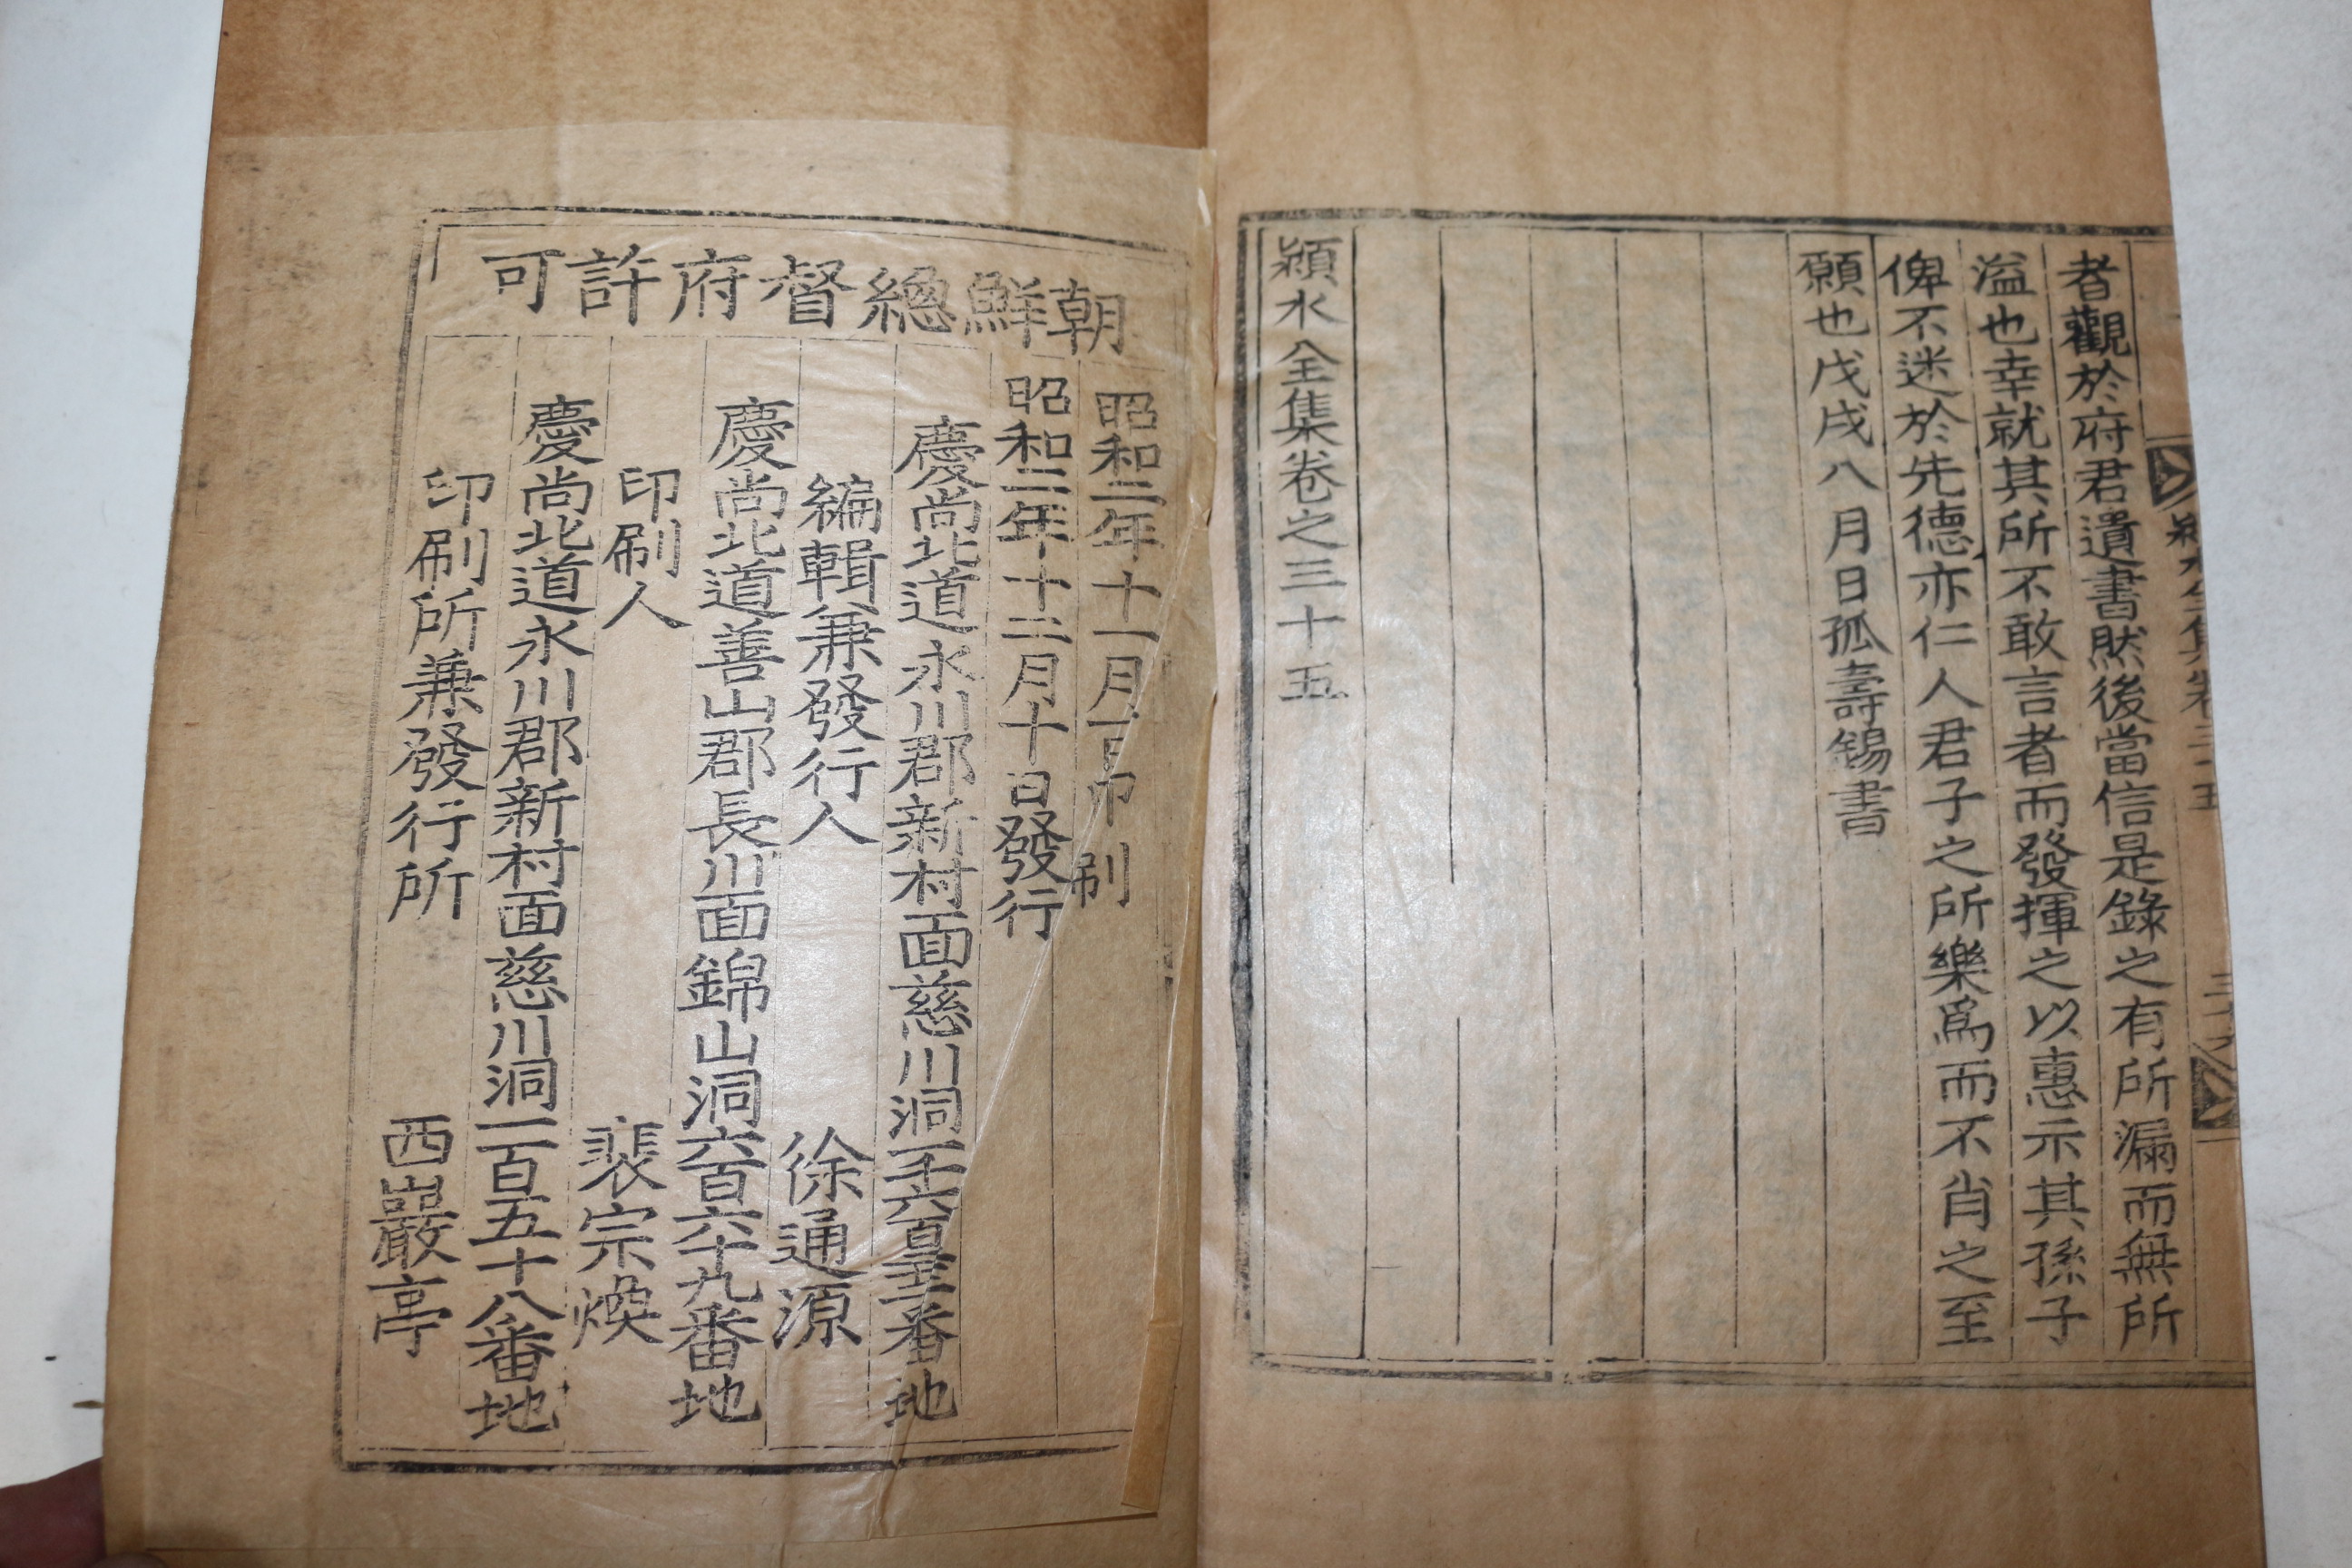 者觀於府君遺書然後當信是錄之有所漏而無所
溢也幸就其所不敢言者而發揮之以惠示其孫子
俾不迷於先德亦仁人君子之所樂爲而不肖之至
願也戊戌八月日孤壽錫書
潁水全集卷之三十五
朝鮮總督府許可
昭和二年十一月一日印刷
昭和二年十二月十日發行
慶尚北道永川郡新村面慈川洞
番地
編輯兼發行人 徐通源
慶尚北道善山郡長川面錦山洞六百六十九番地
印刷人 裴宗煥
慶尚北道永川郡新村面慈川洞一百五十八番地
印刷所兼發行所 西巖亭